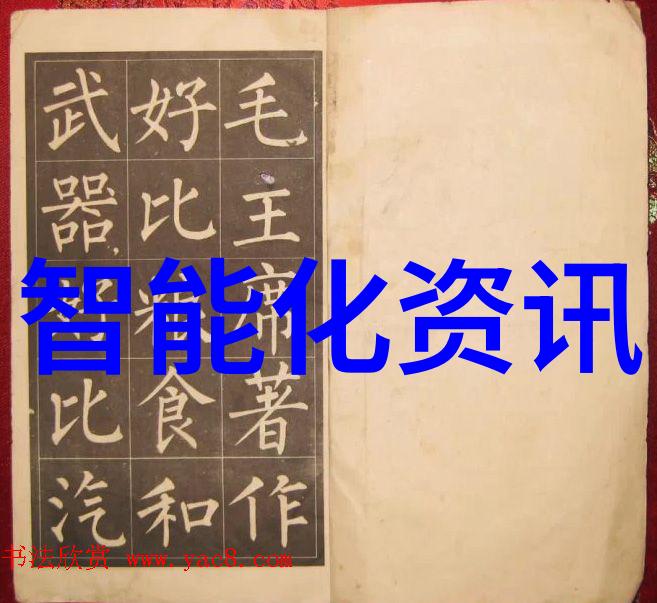 毛主席著作
好比粮食和
武器,好比汽
智能化资讯
书法欣赏 www.yac8.com